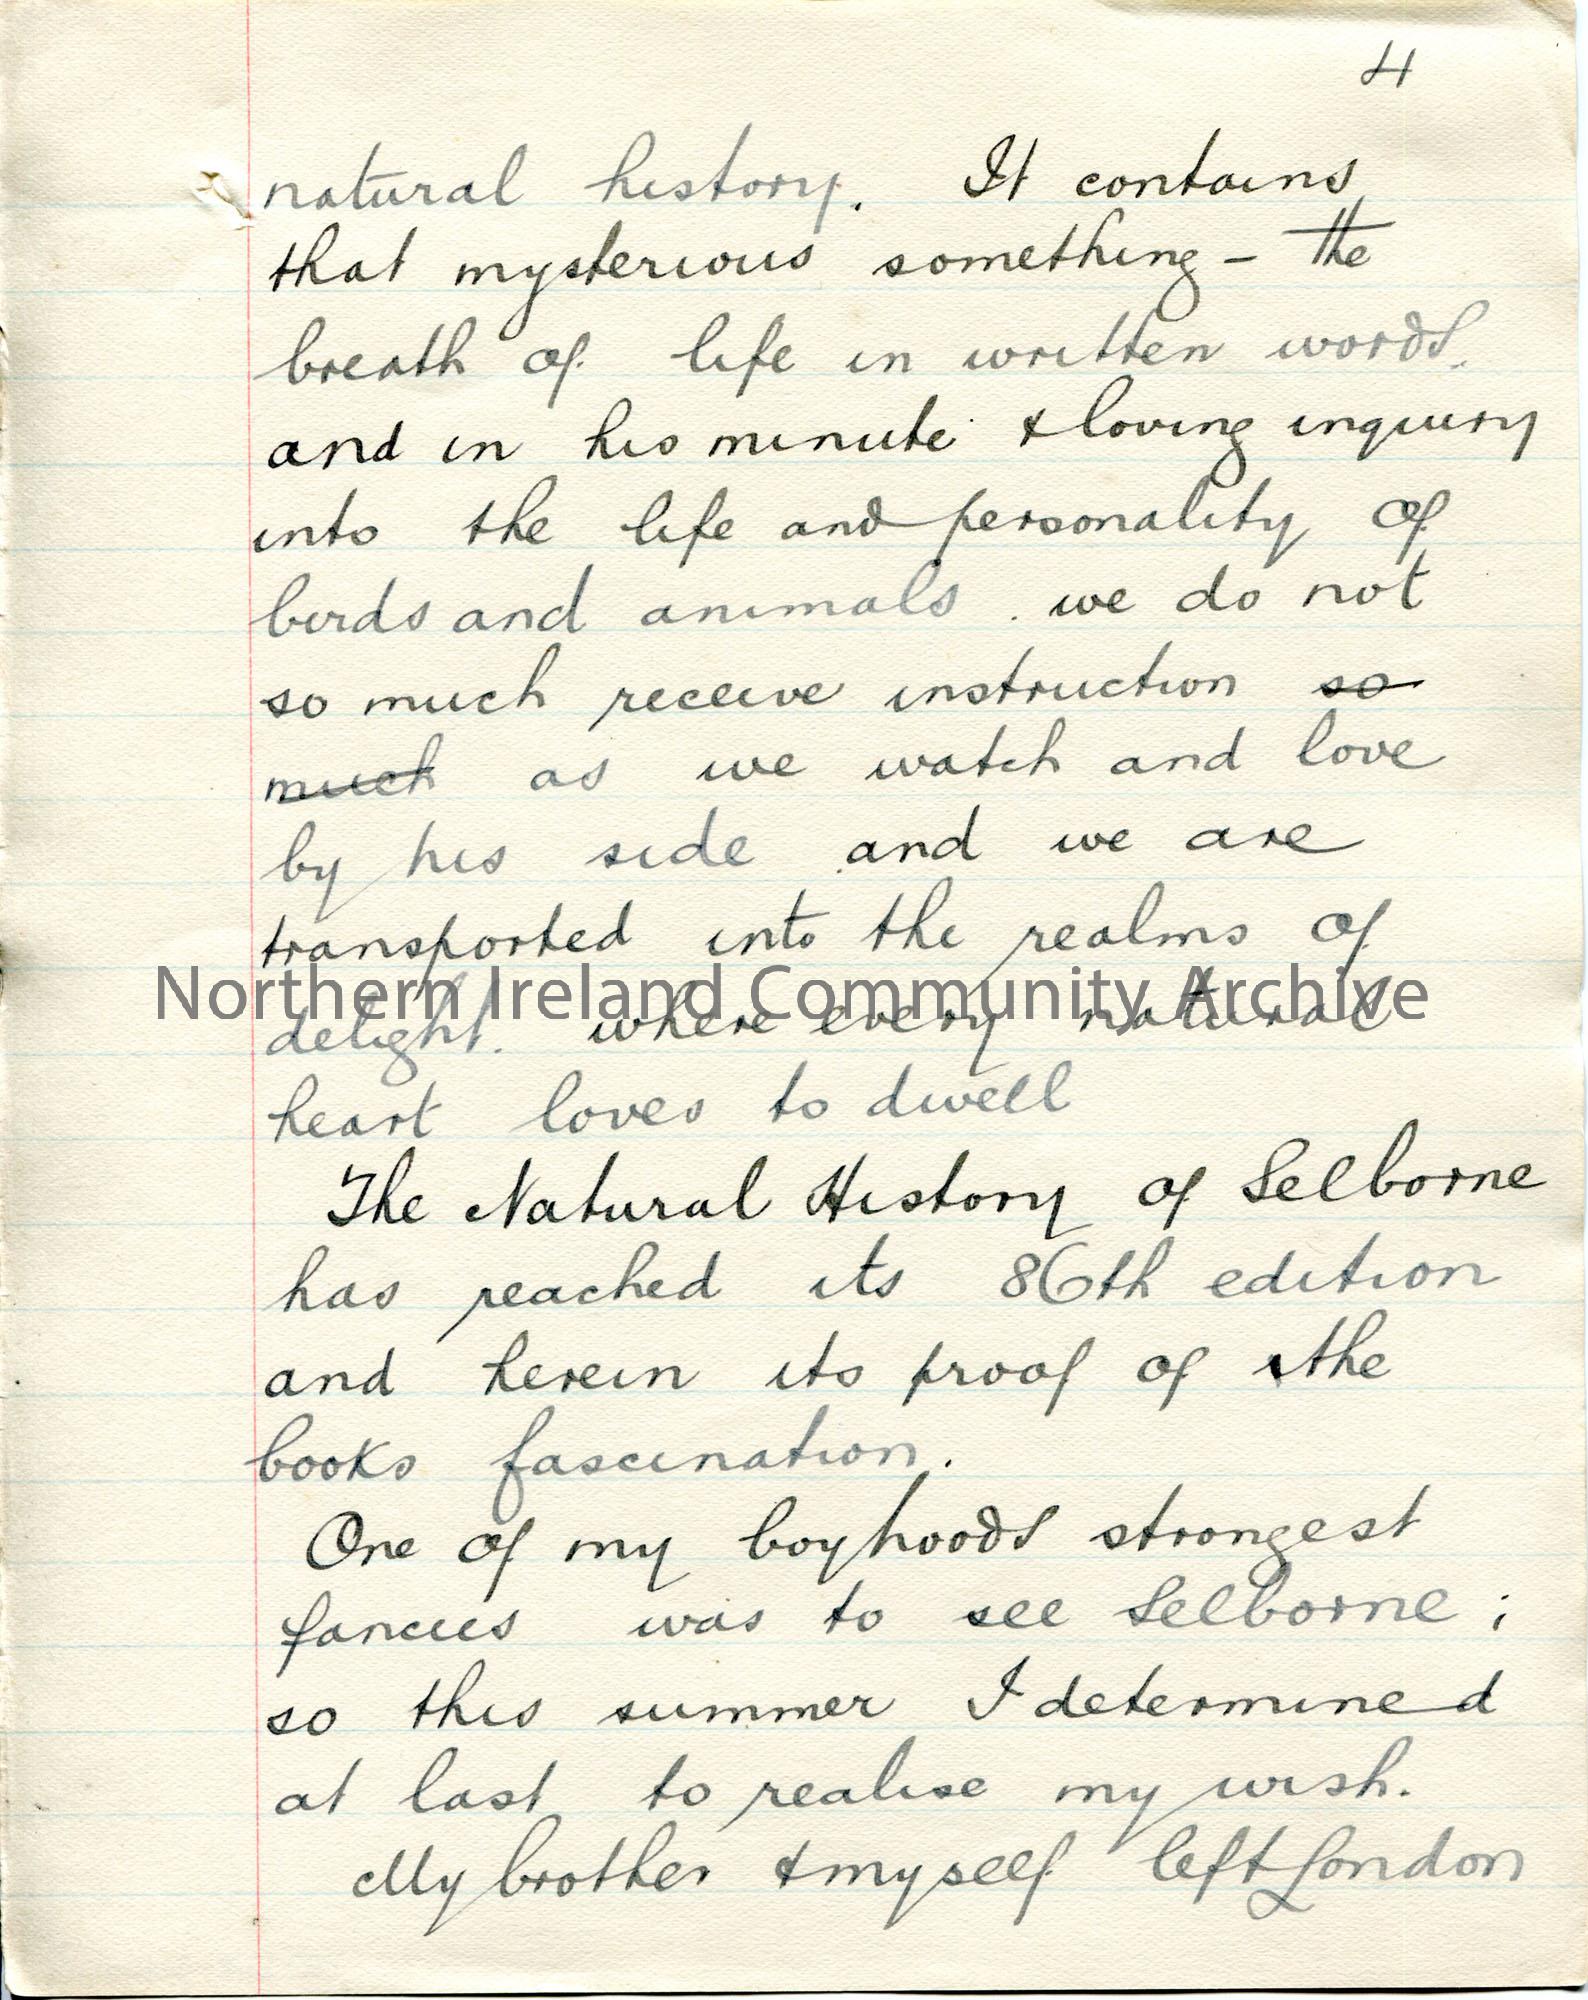 4
natural history. It contains
that mysterious something - the
breath of life in written words.
and in his minute & loving inquiry
into the life and personality of
birds and animals. we do not
so much receive instruction so
much as we watch and love
by his side and we are
transported into the realms of
Northern Ireland Community Archive
delight. where every natural
heart loves to dwell
The Natural History of Selborne
has reached its 86th edition
and herein its proof of the
books fascination.
One of my boyhoods strongest
fancies was to see Selborne ;
so this summer I determined
at last to realise my wish.
My brother & myself left London